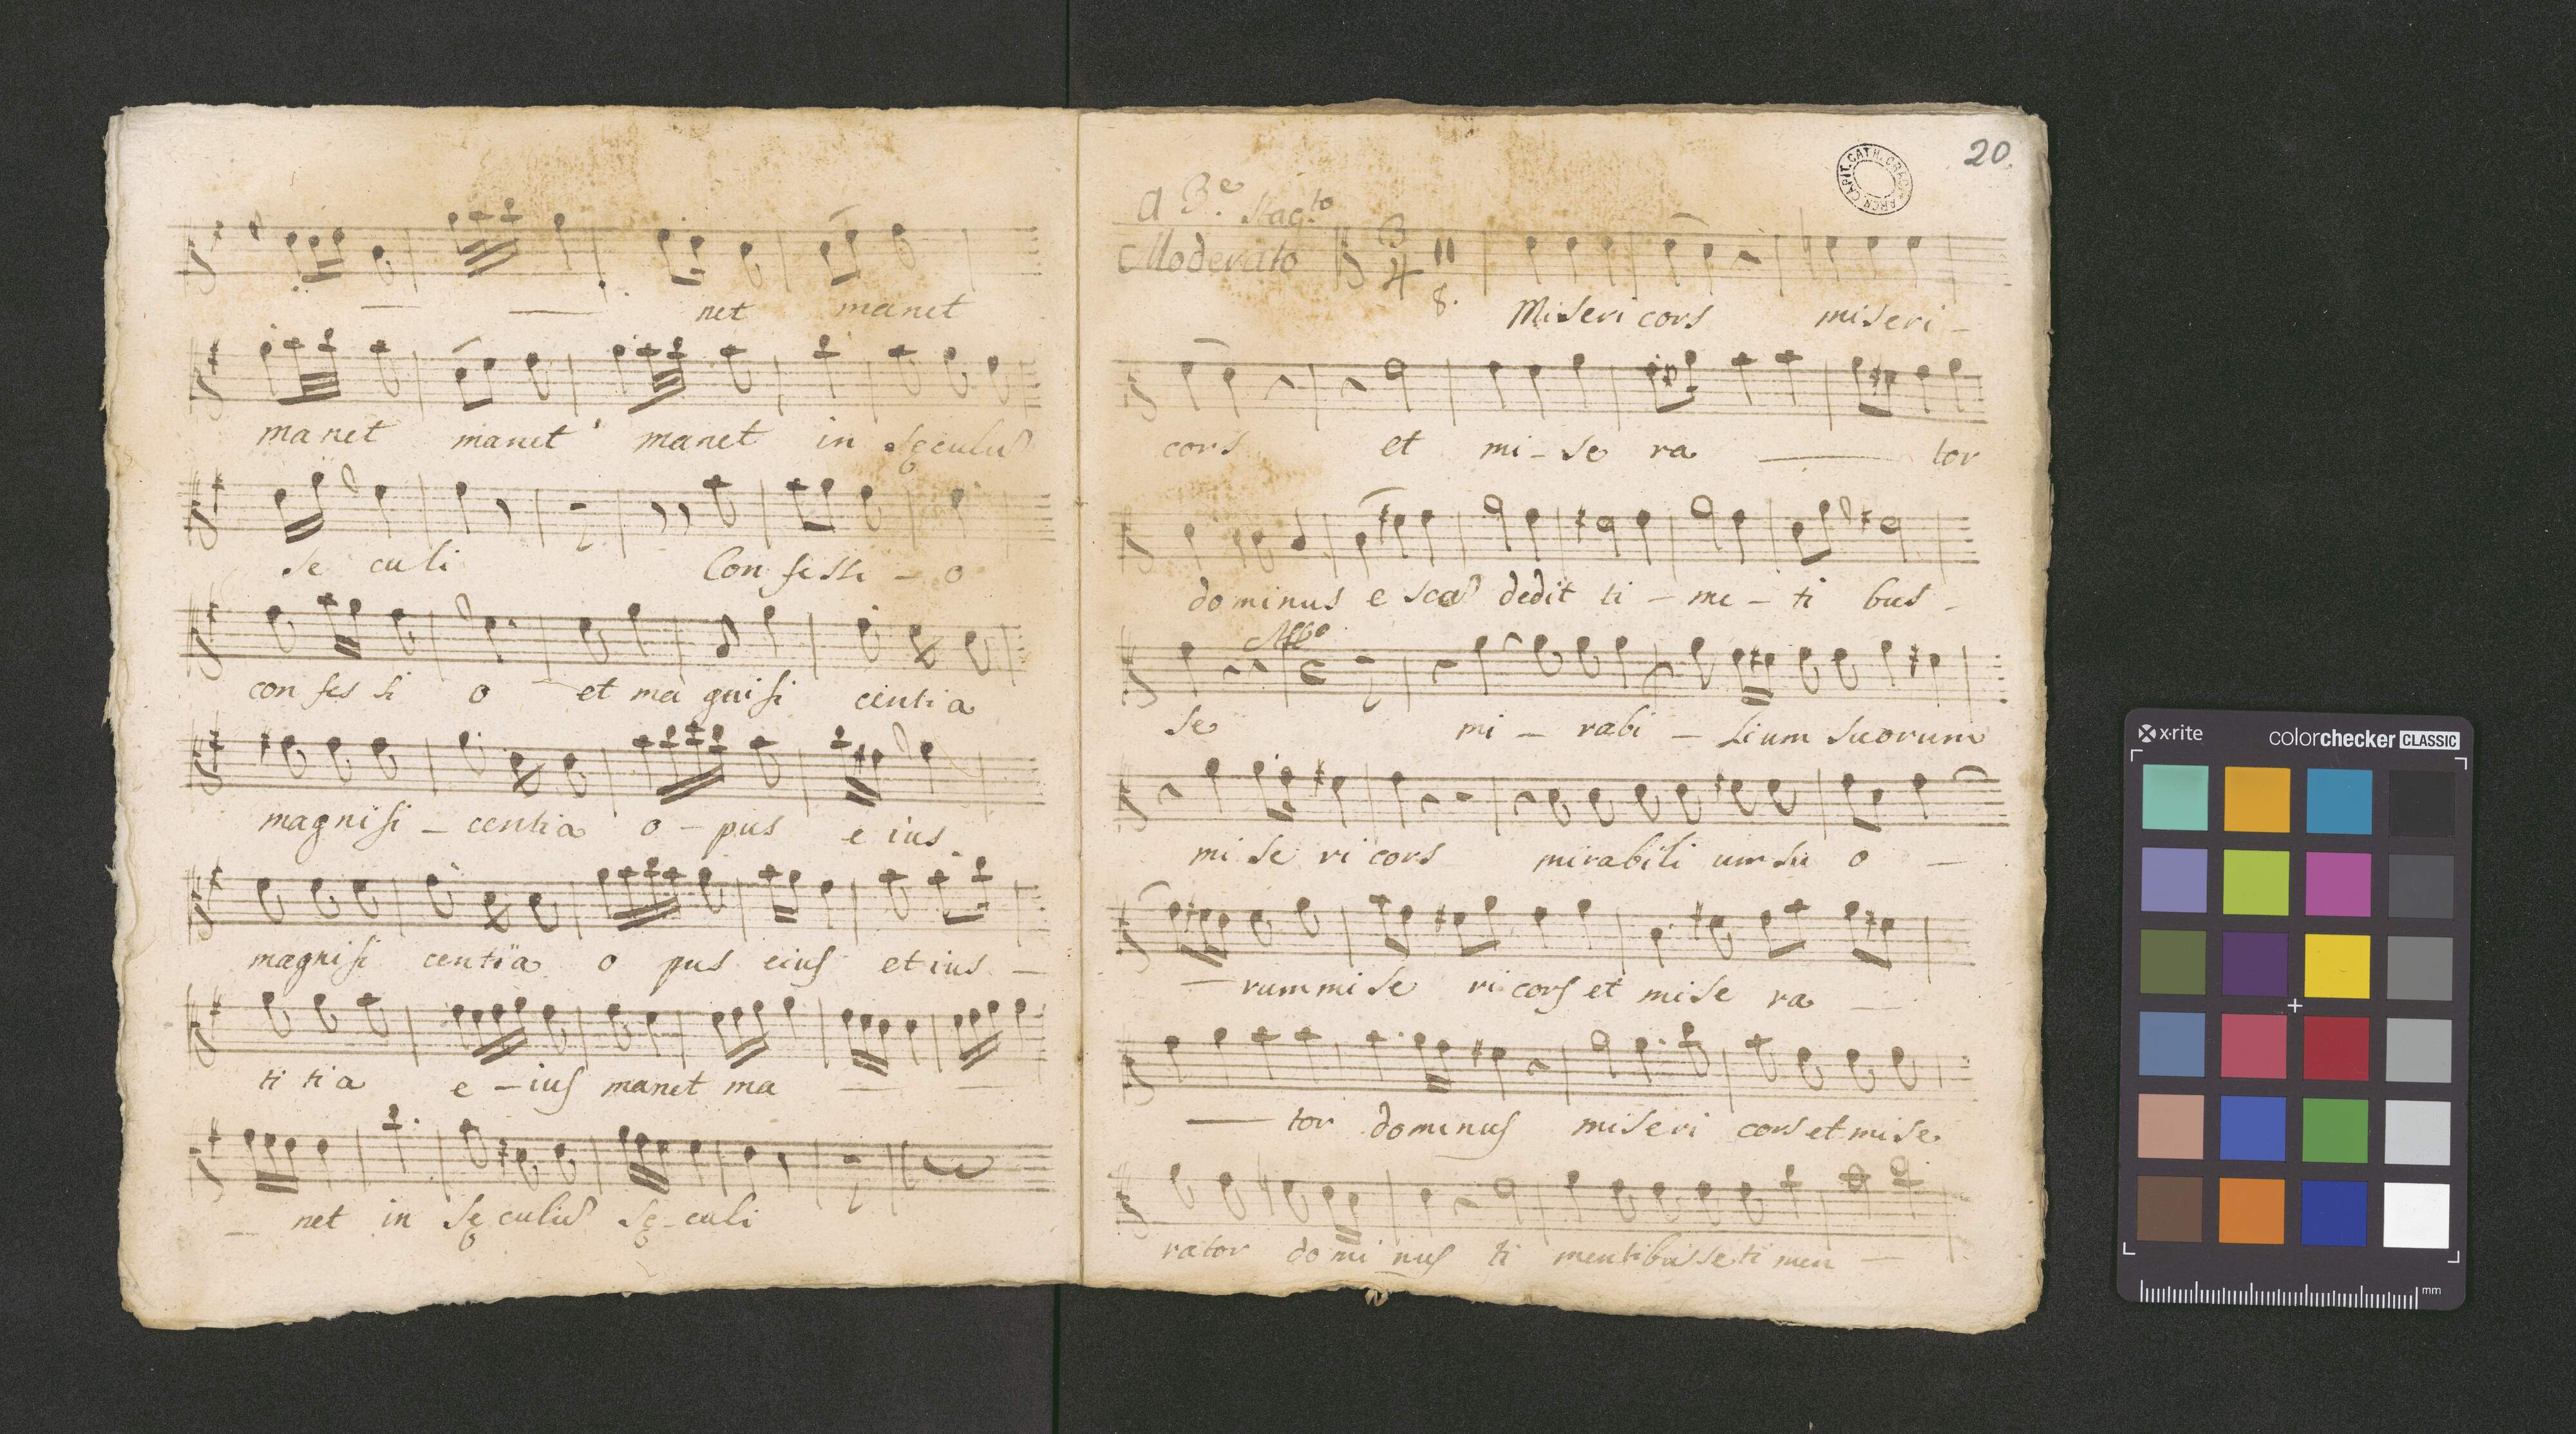 net manet
manet manet manet in seculu
se culi Con fessi - o
con fes si o et ma gnifi centia
magnifi - centia o - pus e ius.
magnifi centia o pus eius et ius -
ti tia e - ius manet ma
net in se culu se - culi
20.
ARCH. CAPIT. CATH. CRAC.
a 3.e Stac.to
Moderato 3 4 8.
Miseri cors miseri -
cors et mi - se ra tor
dominus e sca dedit ti - me - ti bus -
Allo
se mi - rabi - lium suorum
mi se ri cors mirabili um su o -
- rum mi se ri cors et mise ra -
tor dominus miseri cors et mise
rator domi nus ti mentibus se ti men -
x·rite colorchecker CLASSIC
mm